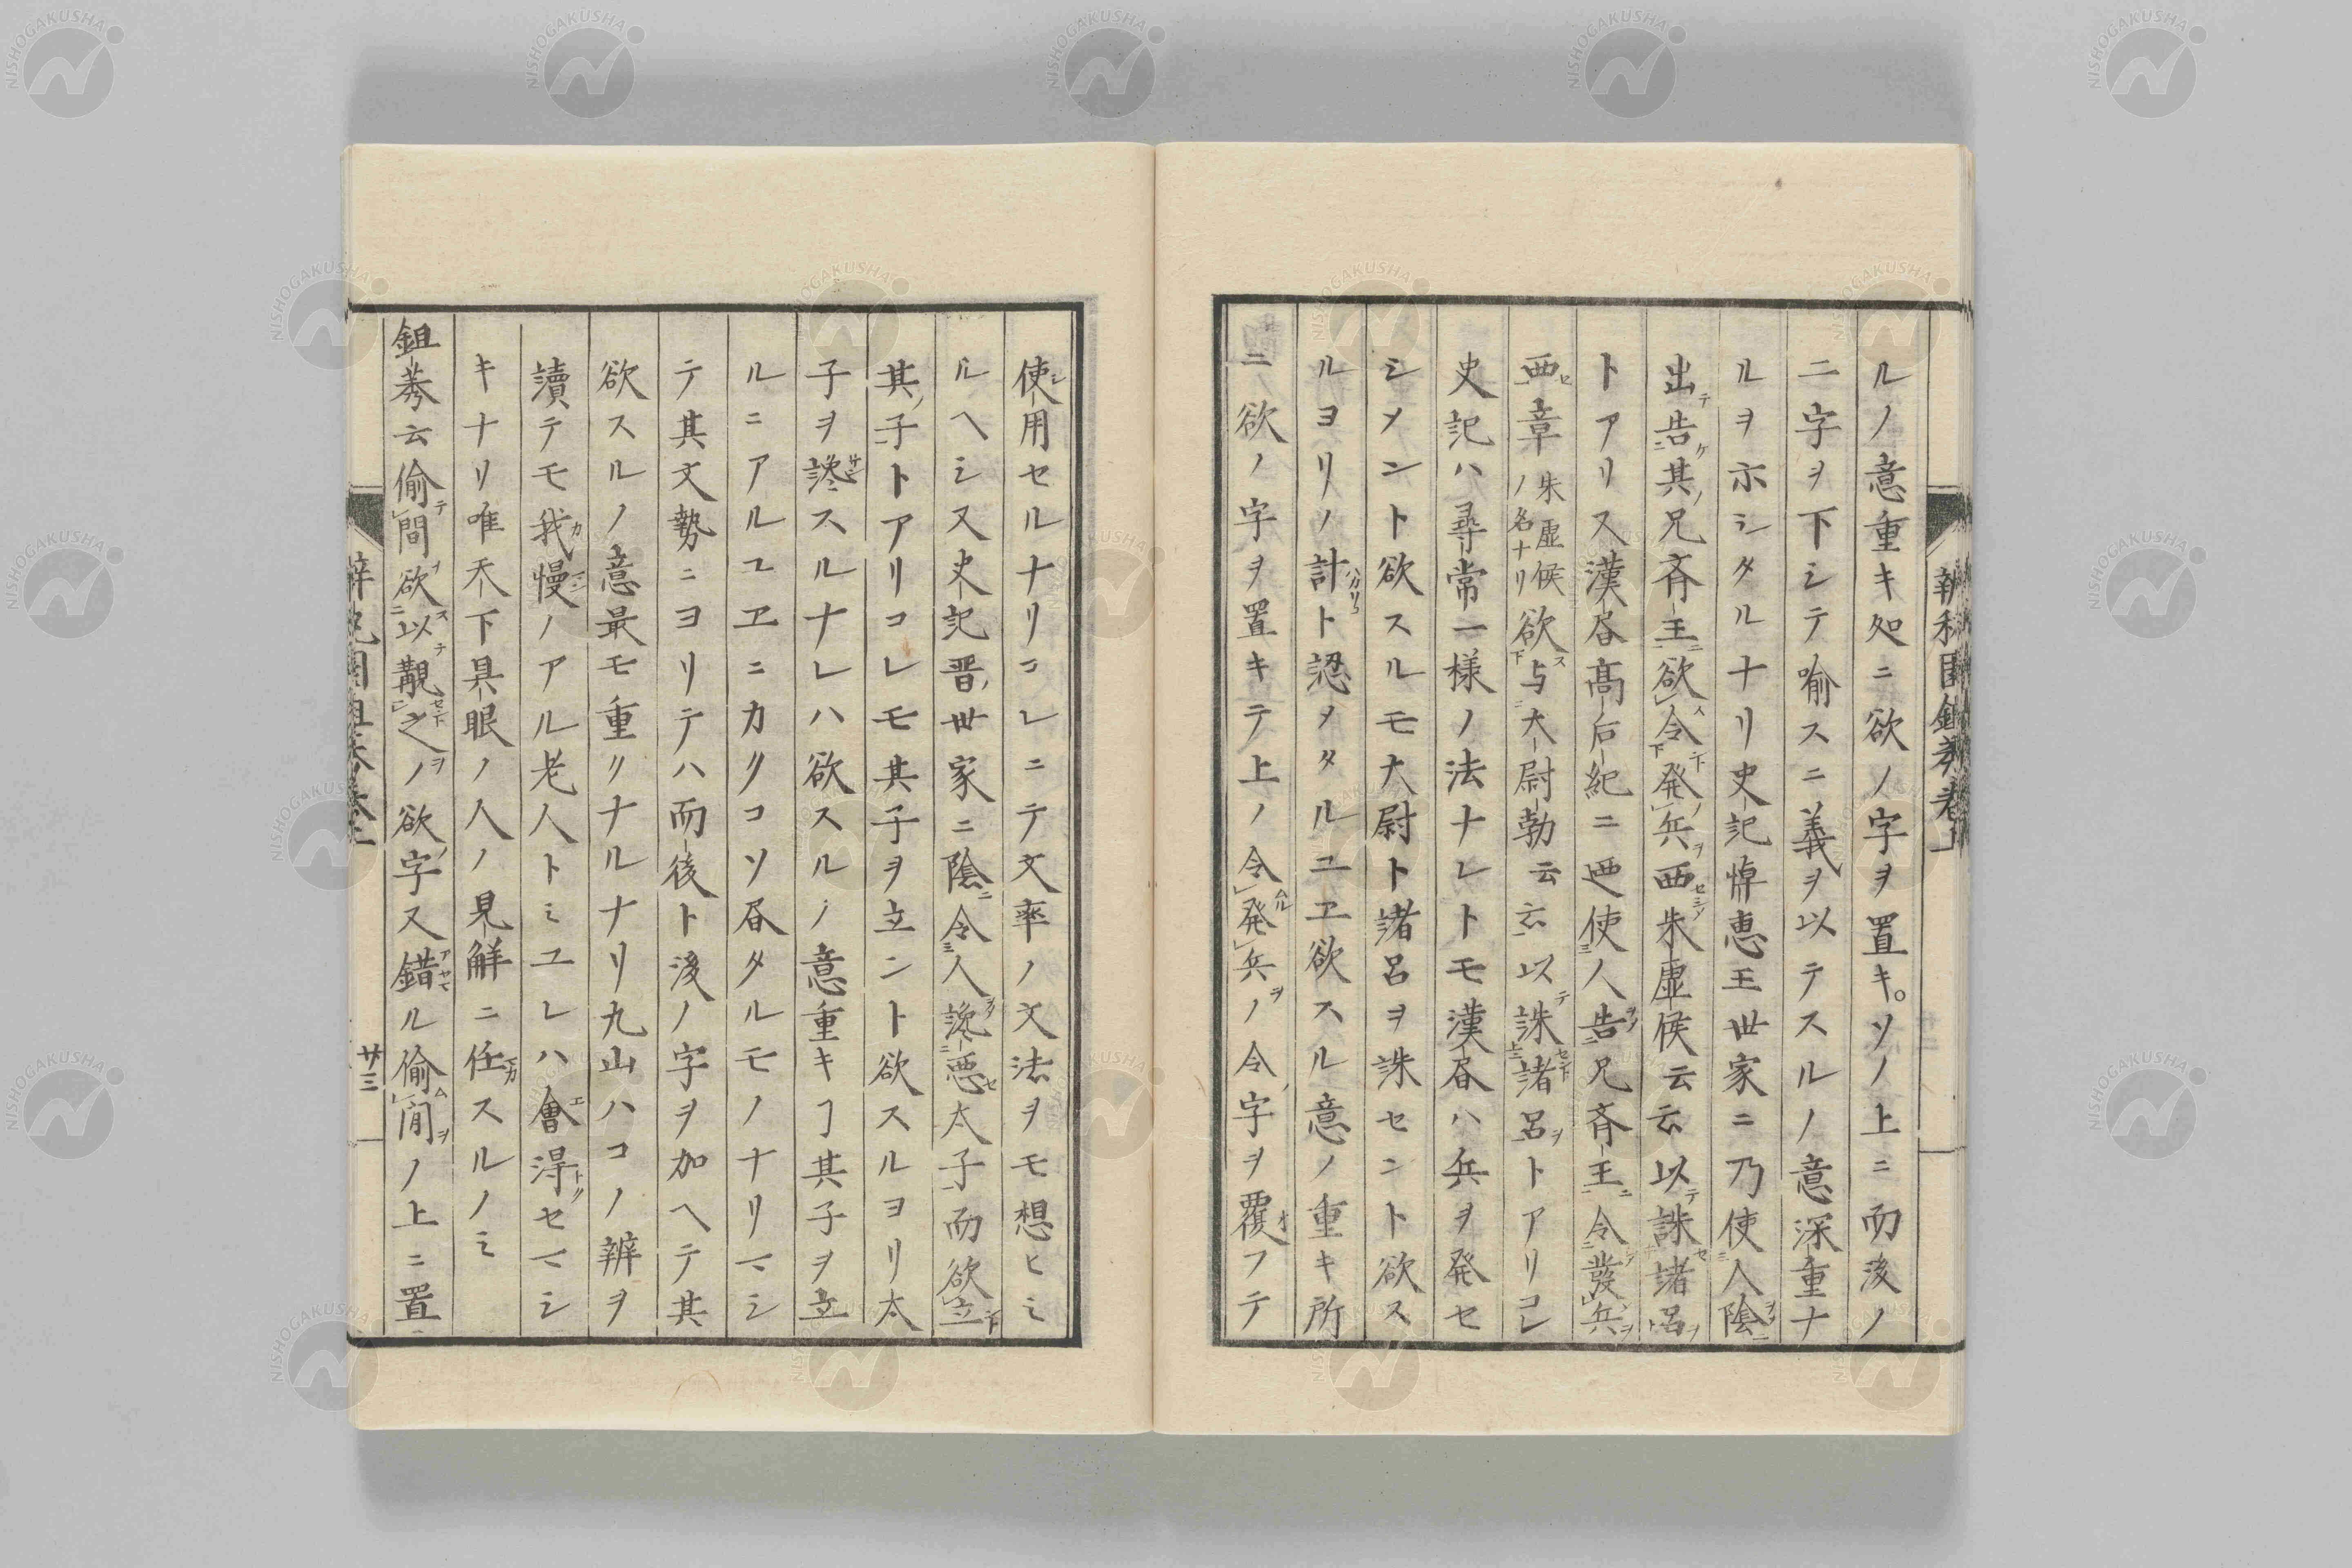 ルノ意重キ処ニ欲ノ字ヲ置キ。ソノ上ニ而後ノ
二字ヲ下シテ喩スニ義ヲ以テスルノ意深重ナ
ルヲ示シタルナリ史記悼惠王世家ニ乃使人陰
出告其兄斉王欲令発兵西朱虚侯云云以誅諸呂
トアリス漢昏高后紀ニ廼使人告兄斉王令發兵
西章朱虚侯ノ名ナリ欲与大尉勃云云以誅諸呂トアリコレ
史記ハ尋常一様ノ法ナレトモ漢昏ハ兵ヲ発セ
シメント欲スルモ大尉ト諸呂ヲ誅セント欲ス
ルヨリノ計ト認メタルユヱ欲スル意ノ重キ所
ニ欲ノ字ヲ置キテ上ノ令発兵ノ令字ヲ覆フテ
使用セルナリコレニテ文率ノ文法ヲモ想ヒシ
ルヘシ又史記晋世家ニ陰令人譖悪太子而欲立
其子トアリコレモ其子ヲ立ント欲スルヨリ太
子ヲ譖スルナレハ欲スルノ意重キヿ其子ヲ立
ルニアルユヱニカクコソ昏タルモノナリマシ
テ其文勢ニヨリテハ而後ト後ノ字ヲ加ヘテ其
欲スルノ意最モ重クナルナリ九山ハコノ辨ヲ
讀テモ我慢ノアル老人トミユレハ會得セマシ
キナリ唯天下具眼ノ人ノ見解ニ任スルノミ
鉏莠云偷間欲以覯之ノ欲字又錯ル偷間ノ上ニ置
廿三